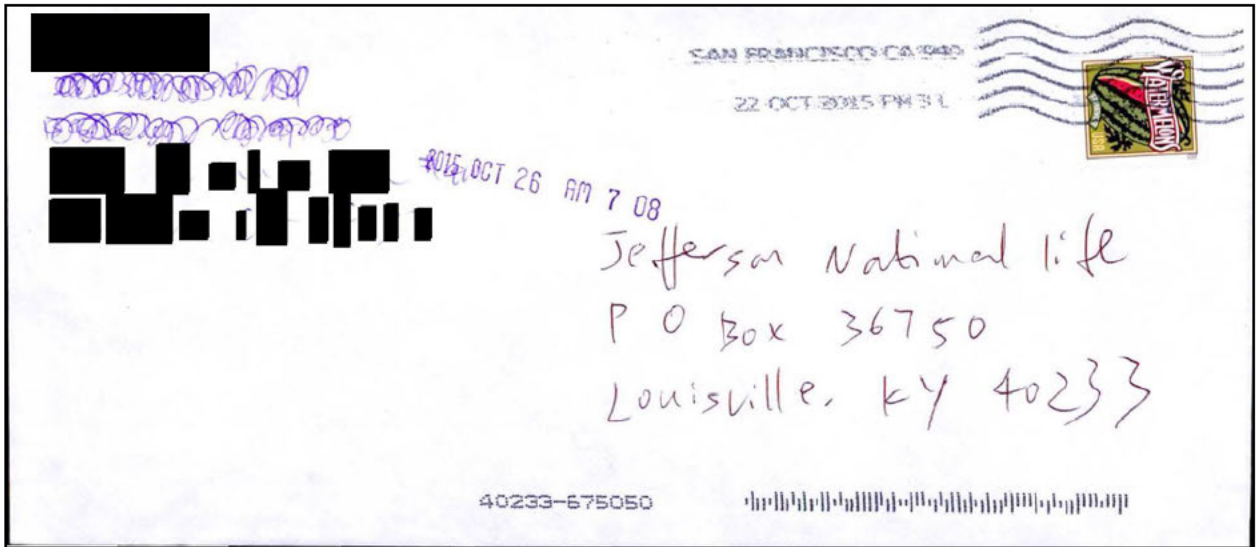 SAN FRANCISCO CA 940
22 OCT 2015 PM 3 L
WATERMELONS
USA
2015 OCT 26 AM 7 08
Jefferson National life
P O Box 36750
Louisville, KY 40233
40233-675050